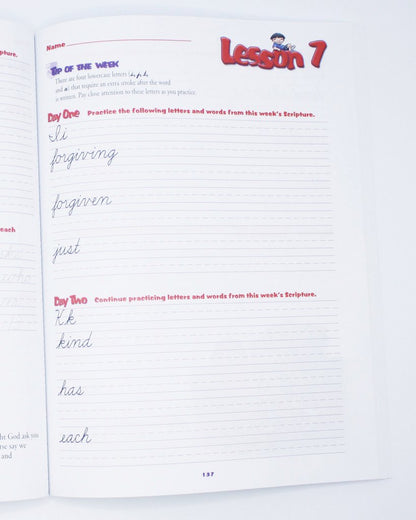 Scripture.
each
ght God ask you
rse say we
and
Name
Lesson 7
Tip of the Week
There are four lowercase letters
and that require an extra stroke after the word
is written. Pay close attention to these letters as you practice
Day One Practice the following letters and words from this week's Scripture.
Ii
forgiving
forgiven
just
Day Two Continue practicing letters and words from this week's Scripture.
Kk
kind
has
each
137